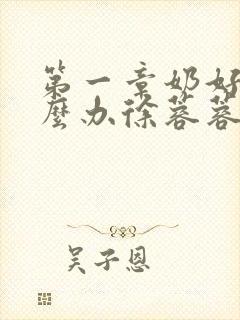 第一章奶好
麼办徐蓉蓉
吴子恩